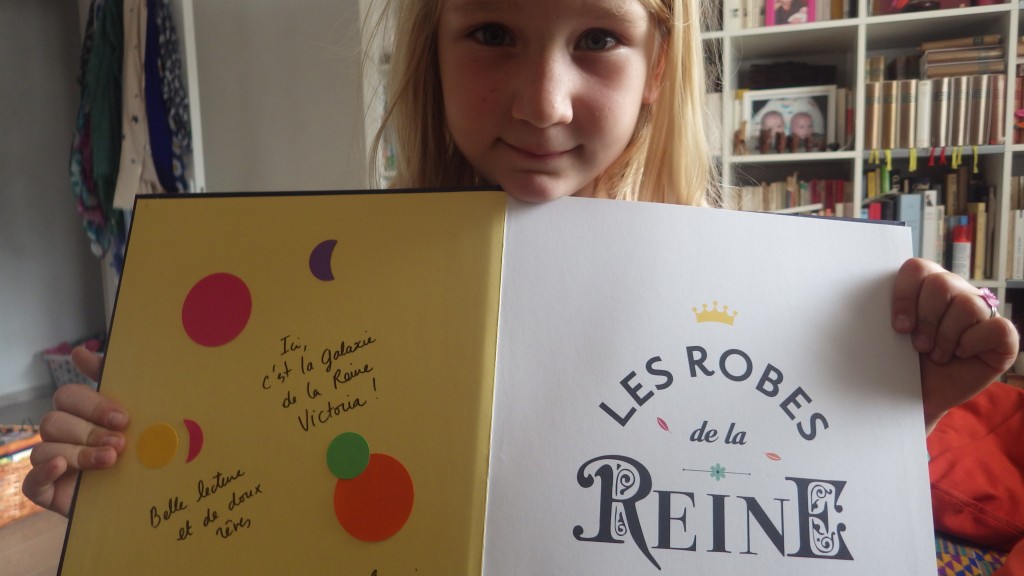 Ici,
c'est la galaxie
de la Reine
Victoria !
Belle lecture
et de doux
rêves
LES ROBES
de la
REINE